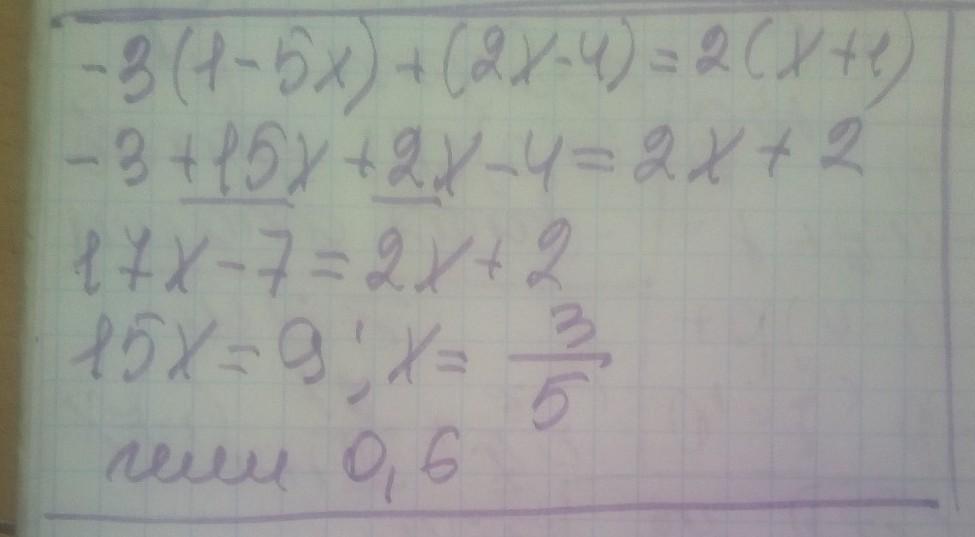 -3(1-5x)+(2x-4)=2(x+1)
-3+15x+2x-4=2x+2
17x-7=2x+2
15x=9; x= 3/5
или 0,6